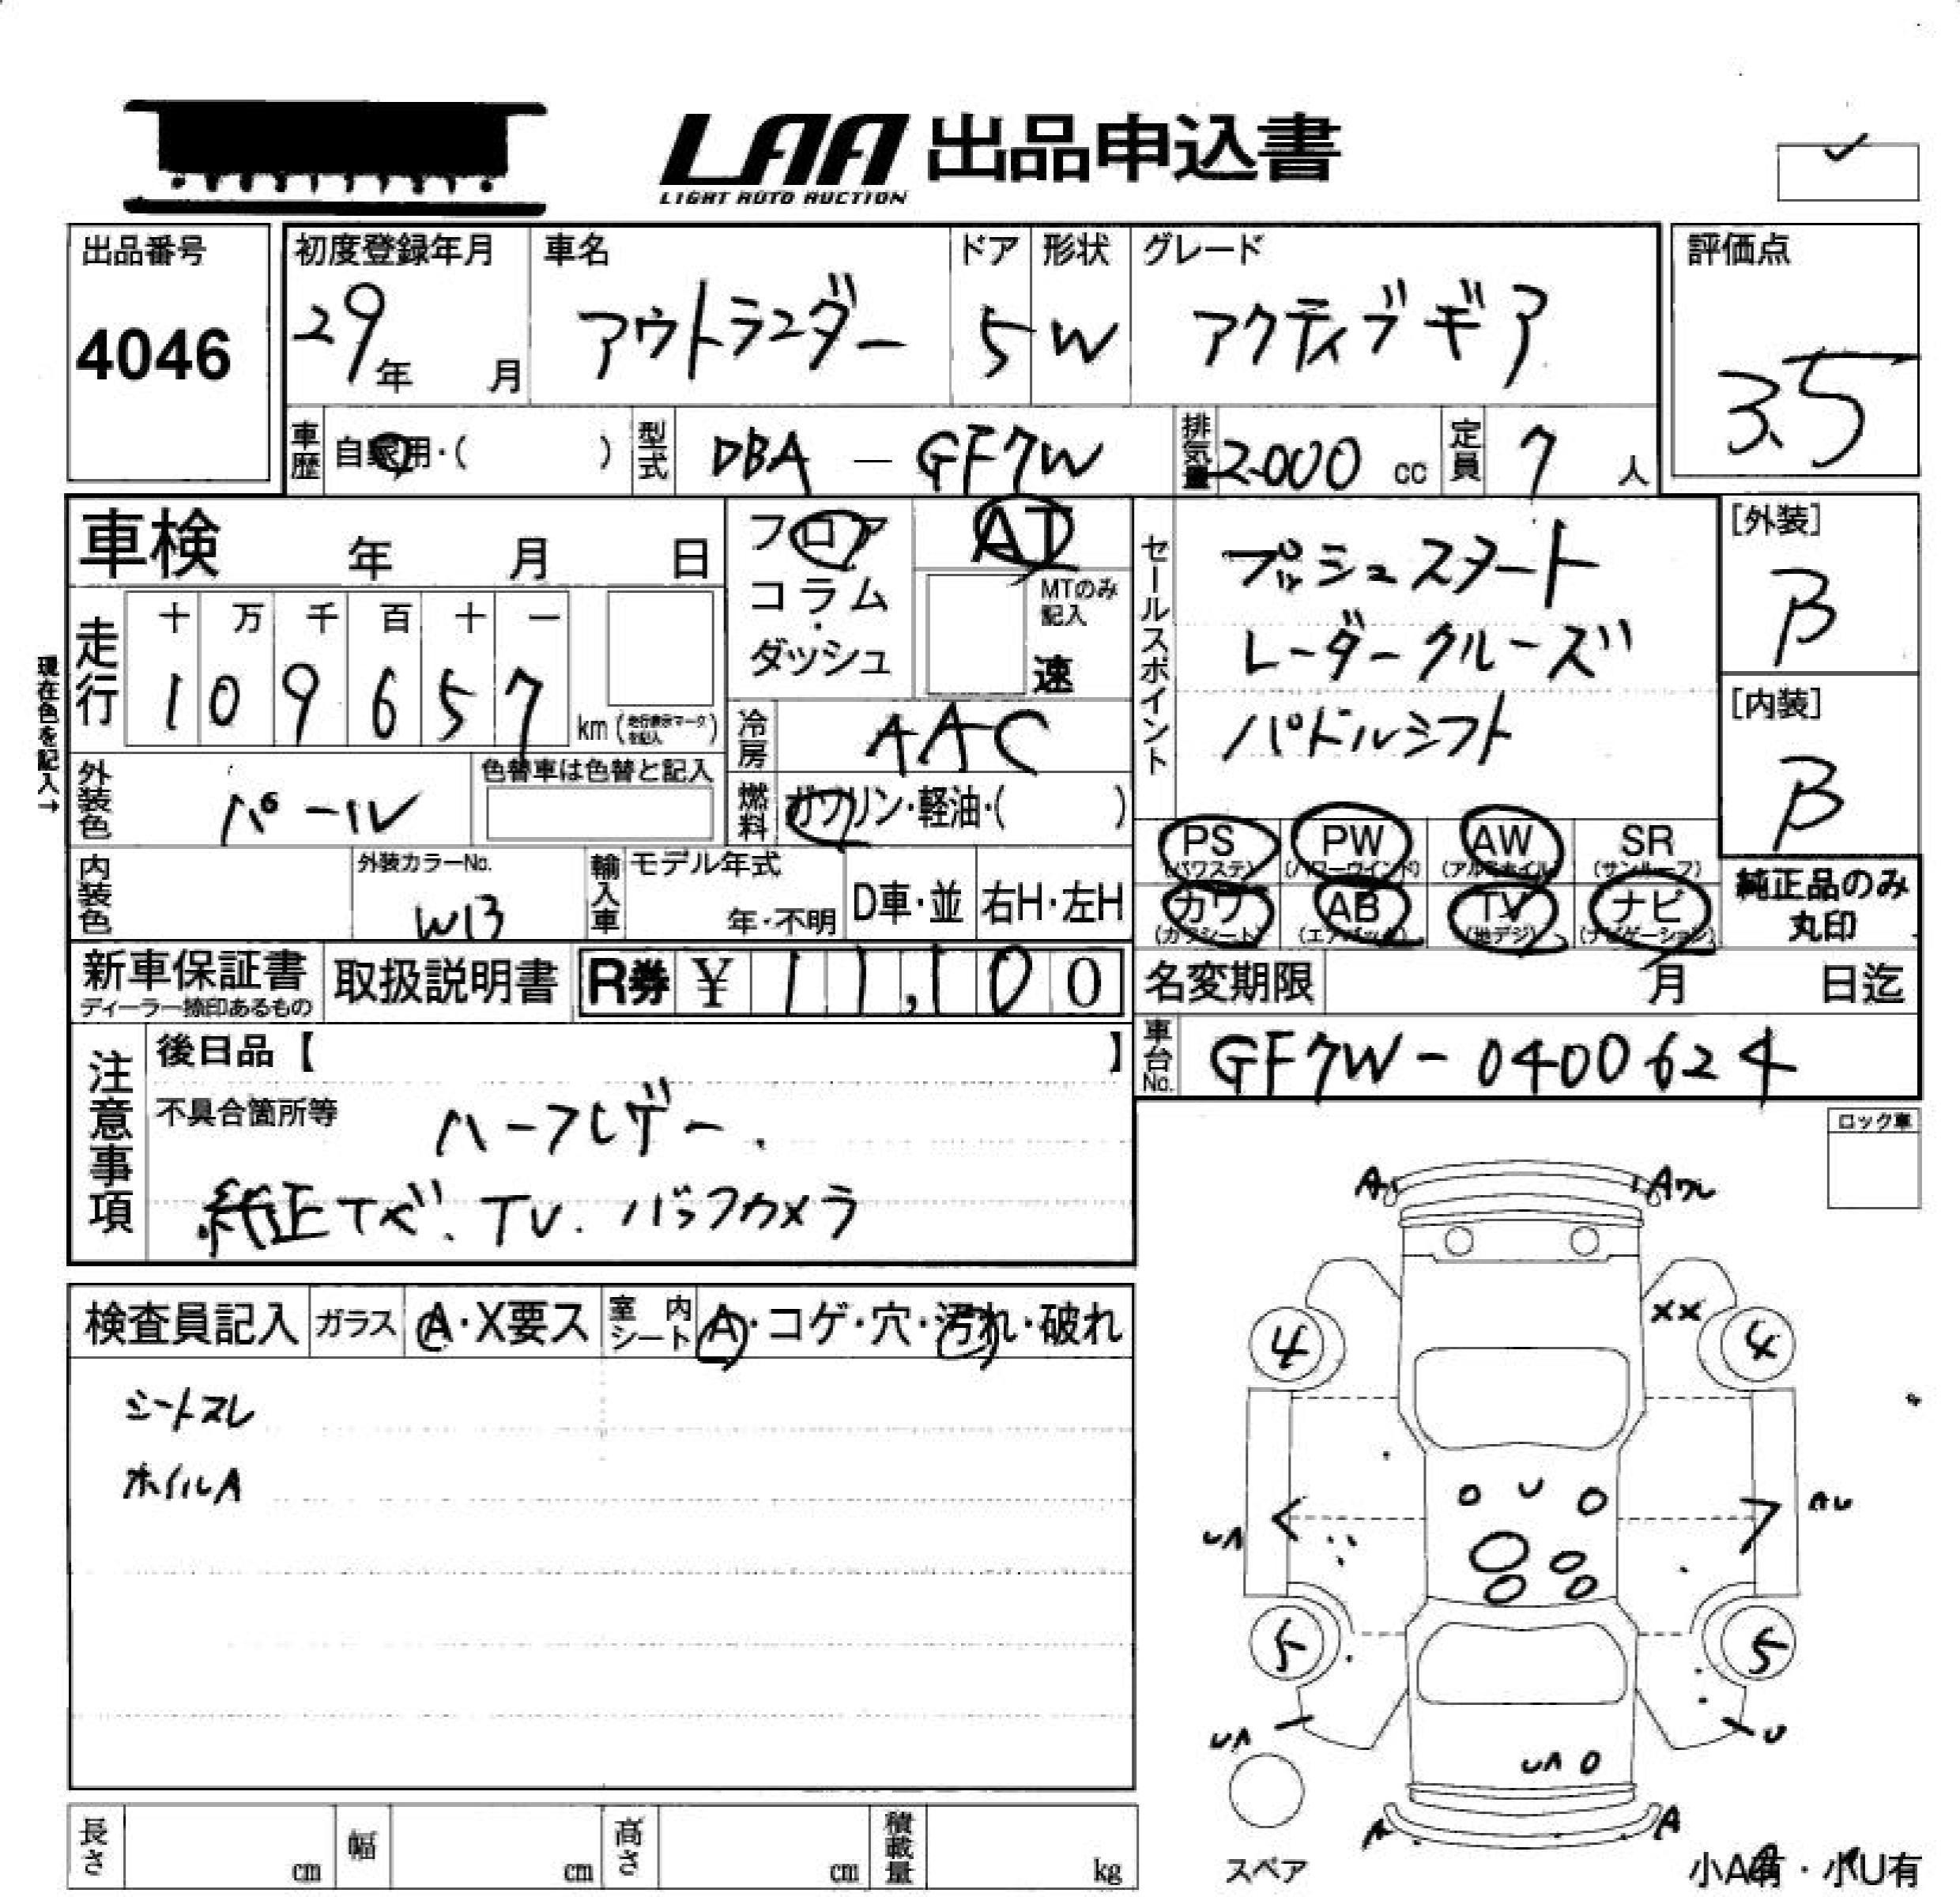 LAA 出品申込書
LIGHT AUTO AUCTION
出品番号
4046
初度登録年月
29年 月
車名
アウトランダー
ドア
5
形状
W
グレード
アクティブギア
評価点
3.5
車歴 自家用・( )
型式 DBA - GF7W
排気量 2000 cc
定員 7 人
車検 年 月 日
フロア
コラム
・
ダッシュ
AT
MTのみ記入
速
セールスポイント
プッシュスタート
レーダークルーズ
パドルシフト
[外装]
B
[内装]
B
現在色を記入→
走行
十 万 千 百 十 一
1 0 9 6 5 7
km (走行表示マークを記入)
冷房 AAC
燃料 ガソリン・軽油・( )
外装色 パール
色替車は色替と記入
内装色
外装カラーNo.
W13
輸入車
モデル年式
年・不明
D車・並
右H・左H
PS (パワステ)
PW (パワーウインド)
AW (アルミホイル)
SR (サンルーフ)
カワ (カワシート)
AB (エアバック)
TV (地デジ)
ナビ (ナビゲーション)
純正品のみ
丸印
新車保証書
ディーラー捺印あるもの
取扱説明書
R券 ¥ 11,100
名変期限 月 日迄
車台No. GF7W-0400624
注意事項
後日品【 】
不具合箇所等
ハーフレザー
純正ナビ. TV. バックカメラ
ロック車
検査員記入
ガラス A・X要ス
室内シート A・コゲ・穴・汚れ・破れ
シートスレ
ホイルA
A
A
XX
4
4
UA
AU
5
5
UA
U
UA
A
A
スペア
小A有・小U有
長さ cm
幅 cm
高さ cm
積載量 kg